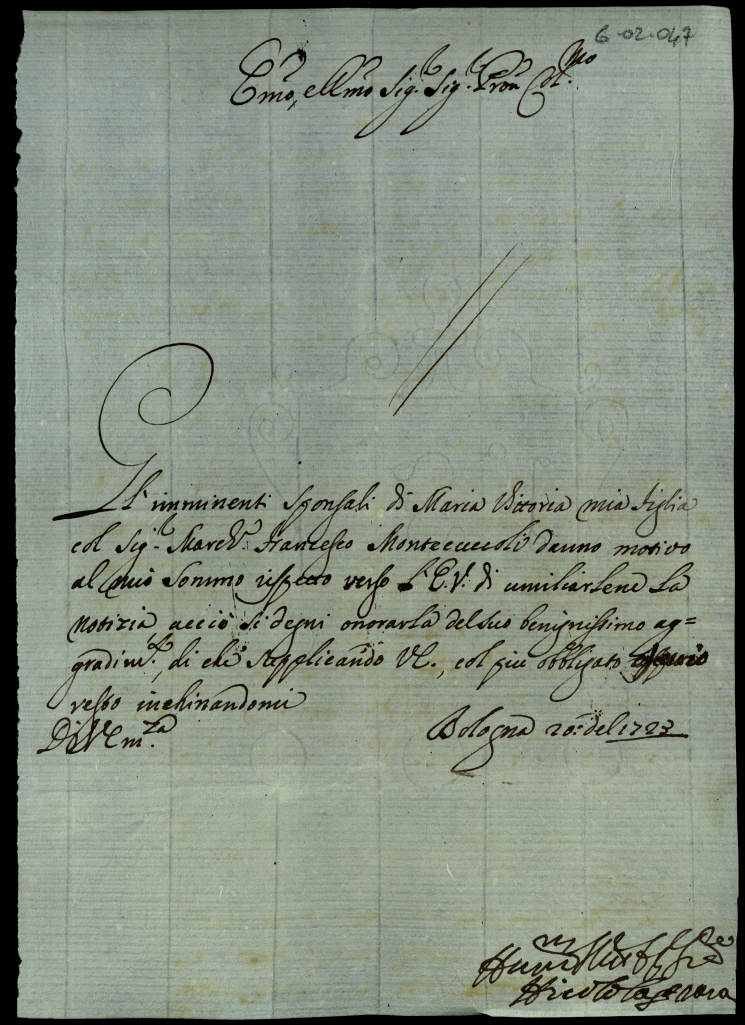 6-02-047
Emo, e Rmo Sig.r Sig.r Pron Col.mo
Gl'imminenti Sponsali di Maria Vittoria mia figlia
col Sig.r March.e Francesco Montecuccoli danno motivo
al mio Sommo rispetto verso l'E.V. di umiliarlene la
notizia acciò si degni onorarla del suo benignissimo ag=
gradim.to, di che Supplicando VE., col più obbligato
resto inchinandomi
Di VEm.za
Bologna 20: del 1723